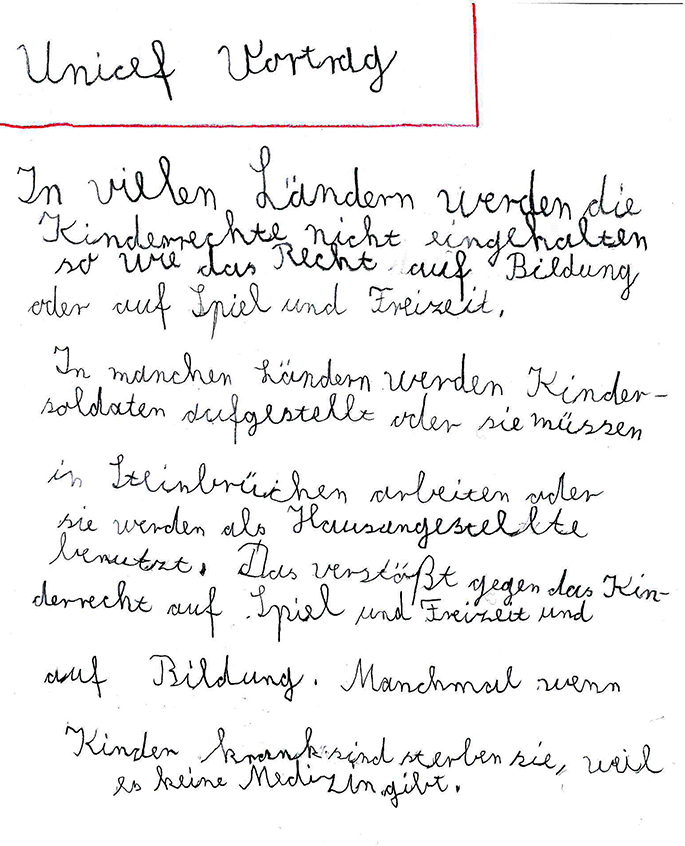 Unicef Vortrag
In vielen Ländern werden die
Kinderrechte nicht eingehalten
so wie das Recht auf Bildung
oder auf Spiel und Freizeit.
In manchen Ländern werden Kinder-
soldaten aufgestellt oder sie müssen
in Steinbrüchen arbeiten oder
sie werden als Hausangestellte
benutzt. Das verstößt gegen das Kin-
derrecht auf Spiel und Freizeit und
auf Bildung. Manchmal wenn
Kinder krank sind sterben sie, weil
es keine Medizin gibt.